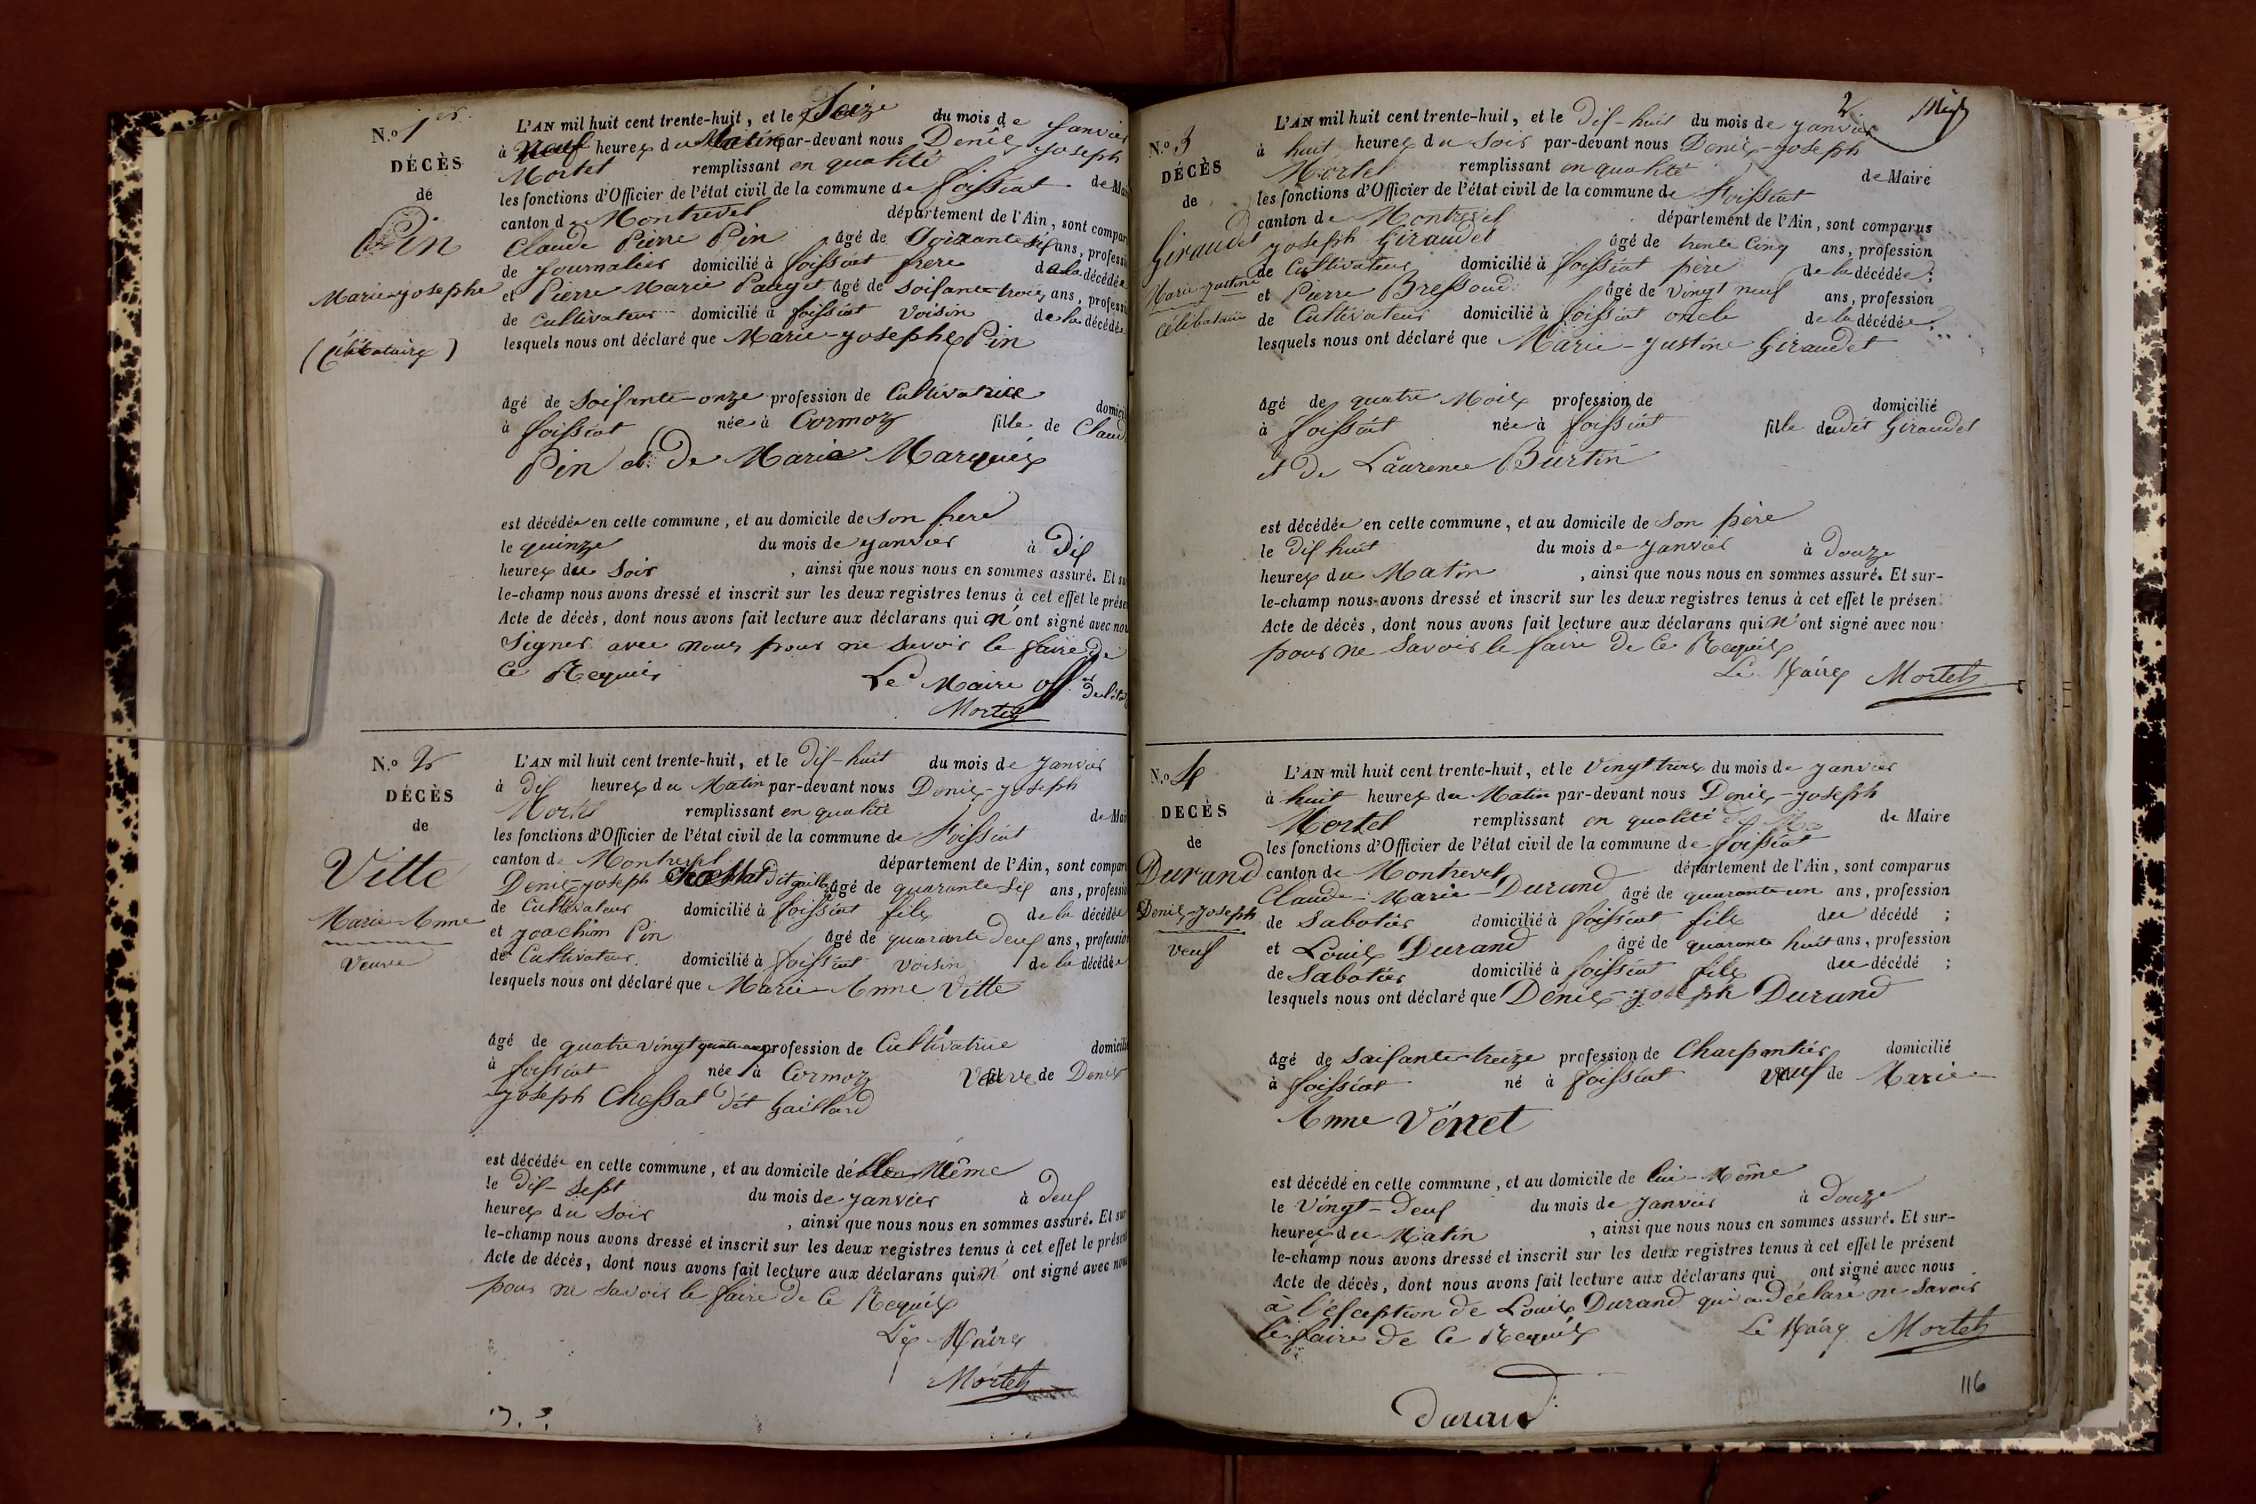 N.º 1er
DÉCÈS
de
Pin
Marie-josephe
(Célibataire)
L'AN mil huit cent trente-huit, et le Seize du mois de janvier
à Neuf heures du Matin par-devant nous Denis Joseph
Mortel remplissant en qualité de Mai
les fonctions d'Officier de l'état civil de la commune de foissiat
canton de Montrevel département de l'Ain, sont compar
Claude Pierre Pin âgé de Soixante six ans, professi
de journalier domicilié à foissiat frere de la décédée
et Pierre Marie Pauget âgé de Soixante trois ans, professi
de Cultivateur domicilié à foissiat voisin de la décédée
lesquels nous ont déclaré que Marie-josephe Pin
âgé de Soixante-onze profession de Cultivatrice domici
à foissiat née à Cormoz fille de Claud
Pin et de Marie Marquis
est décédée en cette commune, et au domicile de son frere
le quinze du mois de janvier à Dix
heures du Soir, ainsi que nous nous en sommes assuré. Et su
le-champ nous avons dressé et inscrit sur les deux registres tenus à cet effet le prése
Acte de décès, dont nous avons fait lecture aux déclarans qui n'ont signé avec nou
Signer avec nous pour ne savoir le faire de
Ce Requis Le Maire off. de l'éta
Mortel
N.º 2
DÉCÈS
de
Vitte
Marie-Anne
Veuve
L'AN mil huit cent trente-huit, et le dix-huit du mois de janvier
à dix heures du Matin par-devant nous Denis-joseph
Mortel remplissant en qualité de Mai
les fonctions d'Officier de l'état civil de la commune de foissiat
canton de Montrevel département de l'Ain, sont compar
Denis-joseph Chossat dit gaillard âgé de quarante six ans, professio
de Cultivateur domicilié à foissiat fils de la décédée
et joachim Pin âgé de quarante deux ans, profession
de Cultivateur domicilié à foissiat voisin de la décédée
lesquels nous ont déclaré que Marie-Anne Vitte
âgé de quatre vingt quatre ans profession de Cultivatrice domicilié
à foissiat née à Cormoz Veuve de Denis
joseph Chossat dit Gaillard
est décédée en cette commune, et au domicile d'elle Même
le dix-sept du mois de janvier à deux
heures du Soir, ainsi que nous nous en sommes assuré. Et sur
le-champ nous avons dressé et inscrit sur les deux registres tenus à cet effet le présen
Acte de décès, dont nous avons fait lecture aux déclarans qui n'ont signé avec nou
pour ne savoir le faire de Ce Requis
Le Maire
Mortel
2
N.º 3
DÉCÈS
de
Giraudet
Marie-justine
Célibataire
L'AN mil huit cent trente-huit, et le dix-huit du mois de janvier
à huit heures du Soir par-devant nous Denis-joseph
Mortel remplissant en qualité de Maire
les fonctions d'Officier de l'état civil de la commune de foissiat
canton de Montrevel département de l'Ain, sont comparus
joseph Giraudet âgé de trente Cinq ans, profession
de Cultivateur domicilié à foissiat père de la décédée;
et Pierre Bressoud âgé de vingt neuf ans, profession
de Cultivateur domicilié à foissiat oncle de la décédée;
lesquels nous ont déclaré que Marie-justine Giraudet
âgé de quatre Mois profession de domicilié
à foissiat née à foissiat fille dudit Giraudet
et de Laurence Burtin
est décédée en cette commune, et au domicile de Son père
le dix huit du mois de janvier à Douze
heures du Matin, ainsi que nous nous en sommes assuré. Et sur-
le-champ nous avons dressé et inscrit sur les deux registres tenus à cet effet le présen
Acte de décès, dont nous avons fait lecture aux déclarans qui n'ont signé avec nou
pour ne Savoir le faire de Ce Requis
Le Maire Mortel
N.º 4
DÉCÈS
de
Durand
Denis-joseph
veuf
L'AN mil huit cent trente-huit, et le vingt trois du mois de janvier
à huit heures du Matin par-devant nous Denis-joseph
Mortel remplissant en qualité de Maire
les fonctions d'Officier de l'état civil de la commune de foissiat
canton de Montrevel département de l'Ain, sont comparus
Claude-Marie-Durand âgé de quarante un ans, profession
de Sabotier domicilié à foissiat fils du décédé;
et Louis Durand âgé de quarante huit ans, profession
de Sabotier domicilié à foissiat fils du décédé;
lesquels nous ont déclaré que Denis-joseph Durand
âgé de Soixante-treize profession de Charpentier domicilié
à foissiat né à foissiat veuf de Marie-
Anne Vénet
est décédé en cette commune, et au domicile de lui-Même
le vingt-deux du mois de janvier à Douze
heures du Matin, ainsi que nous nous en sommes assuré. Et sur-
le-champ nous avons dressé et inscrit sur les deux registres tenus à cet effet le présent
Acte de décès, dont nous avons fait lecture aux déclarans qui ont signé avec nous
à l'exception de Louis Durand qui a déclaré ne Savoir
le faire de Ce Requis Le Maire Mortel
Durand
116